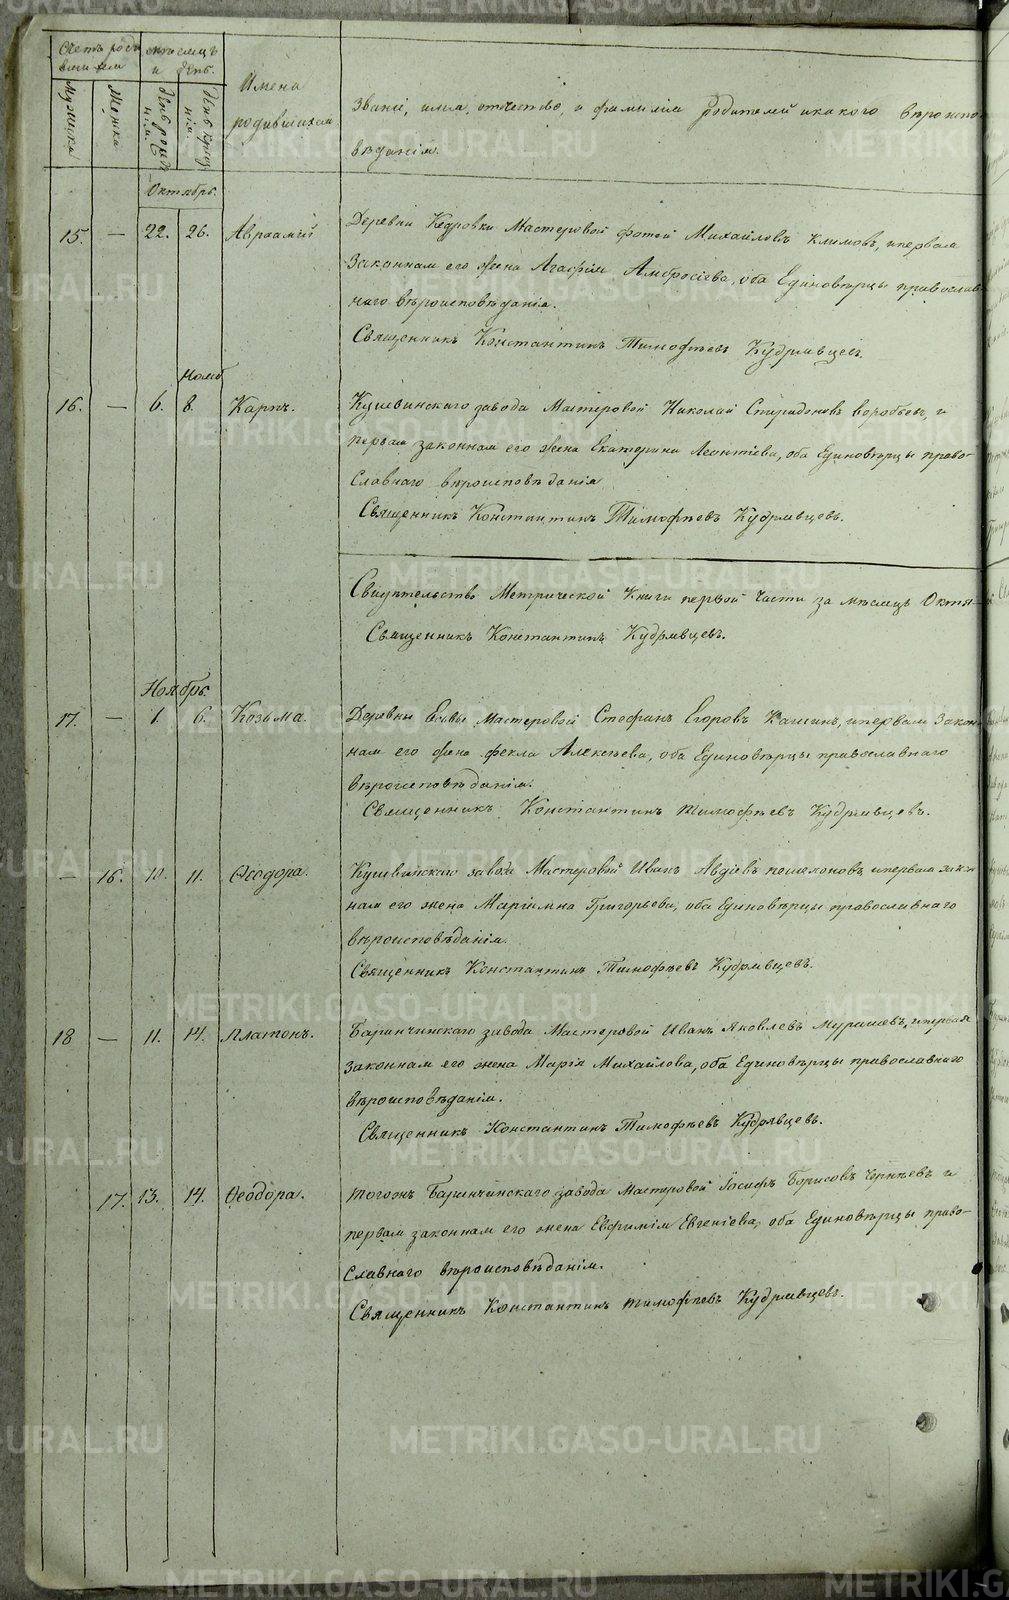 Счетъ родившихся
Мѣсяцъ и день.
Мужеска
Женска
День рожденiя.
День крещенiя.
Имена родившихся
Званiе, имя, отчество, и фамилiя родителей и какого вѣроиспо-
вѣданiя.
Октябрь.
15. — 22. 26. Авраамiй
Деревни Кедровки Мастеровой Фотей Михайловъ Климовъ, и первая
законная его жена Агафiя Амбросiева, оба Единовѣрцы православ-
наго вѣроисповѣданiя.
Священникъ Константинъ Тимофѣевъ Кудрявцевъ.
Нояб
16. — 6. 8. Карпъ.
Кушвинскаго завода Мастеровой Николай Спиридоновъ Воробьевъ, и
первая законная его жена Екатерина Леонтiева, оба Единовѣрцы право-
славнаго вѣроисповѣданiя
Священникъ Константинъ Тимофѣевъ Кудрявцевъ.
Свидѣтельство Метрической Книги первой части за мѣсяцъ Октя-
Священникъ Константинъ Кудрявцевъ.
Ноябрь.
17. — 1. 6. Козьма.
Деревни Еввы Мастеровой Стефанъ Егоровъ, и первая закон-
ная его жена Фекла Алексѣева, оба Единовѣрцы православнаго
вѣроисповѣданiя.
Священникъ Константинъ Тимофѣевъ Кудрявцевъ.
— 16. 10. 11. Ѳеодора.
Кушвинскаго завода Мастеровой Иванъ Авдiевъ Пошехоновъ, и первая закон-
ная его жена Марiямна Григорьева, оба Единовѣрцы православнаго
вѣроисповѣданiя.
Священникъ Константинъ Тимофѣевъ Кудрявцевъ.
18 — 11. 14. Платонъ.
Баранчинскаго завода Мастеровой Иванъ Яковлевъ Мурашевъ, и первая
законная его жена Марiя Михайлова, оба Единовѣрцы православнаго
вѣроисповѣданiя.
Священникъ Константинъ Тимофѣевъ Кудрявцевъ.
17. 13. 14. Ѳеодора.
Тогожъ Баранчинскаго завода Мастеровой Iосифъ Борисовъ и
первая законная его жена Евфимiя Евгенiева, оба Единовѣрцы право-
славнаго вѣроисповѣданiя.
Священникъ Константинъ Тимофѣевъ Кудрявцевъ.
METRIKI.GASO-URAL.RU